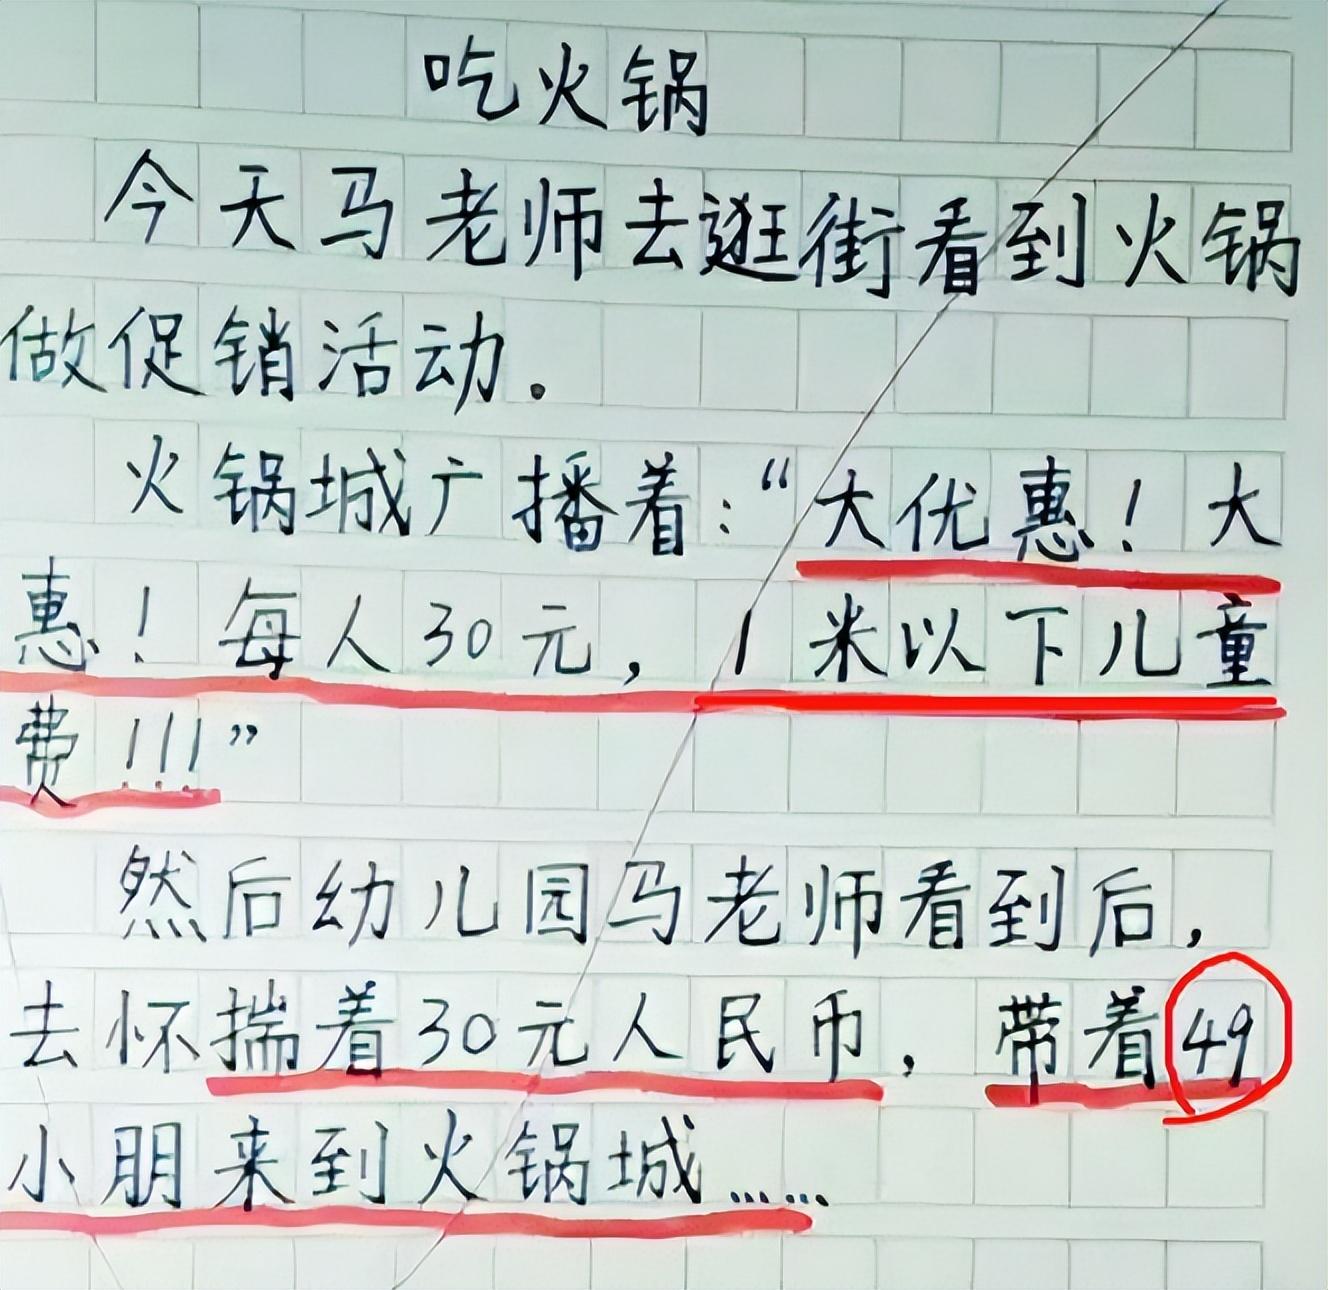 吃火锅
今天马老师去逛街看到火锅
做促销活动.
火锅城广播着:“大优惠!大
惠!每人30元,1米以下儿童
费!!!”
然后幼儿园马老师看到后,
去怀揣着30元人民币,带着49
小朋来到火锅城……